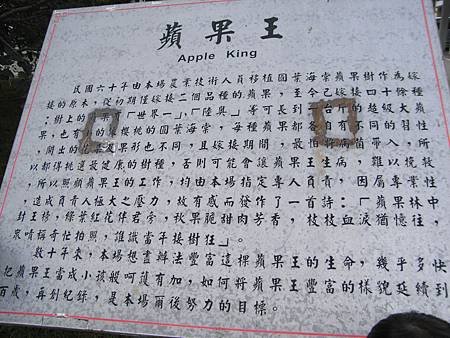 蘋果王
Apple King
民國六十年由本場農業技術人員移植圓葉海棠蘋果樹作為嫁
接的原木,從初期僅嫁接二個品種的蘋果,至今已嫁接四十餘種
;樹上的果「世界一」、「陸奧」等可長到台斤的超級大蘋
果,也有小的像櫻桃的圓葉海棠,每種蘋果都各自有不同的習性
,開出的花及果形也不同,且嫁接期間,最怕將病菌帶入,所
以都得挑選最健康的樹種,否則可能會讓蘋果王生病,難以挽救
,所以照顧蘋果王的工作,均由本場指定專人負責,因屬專業性
,造成負責人極大之壓力,故有感而發作了一首詩:「蘋果林中
封王樹,綠葉紅花伴君旁,秋果脆甜肉芳香,枝枝血淚猶憶往,
眾嘖稱奇忙拍照,誰識當年接樹狂」。
數十年來,本場想盡辦法豐富這棵蘋果王的生命,幾乎多快
把蘋果王當成小孩般呵護有加,如何將蘋果王豐富的樣貌延續到
百歲,再創紀錄,是本場爾後努力的目標。